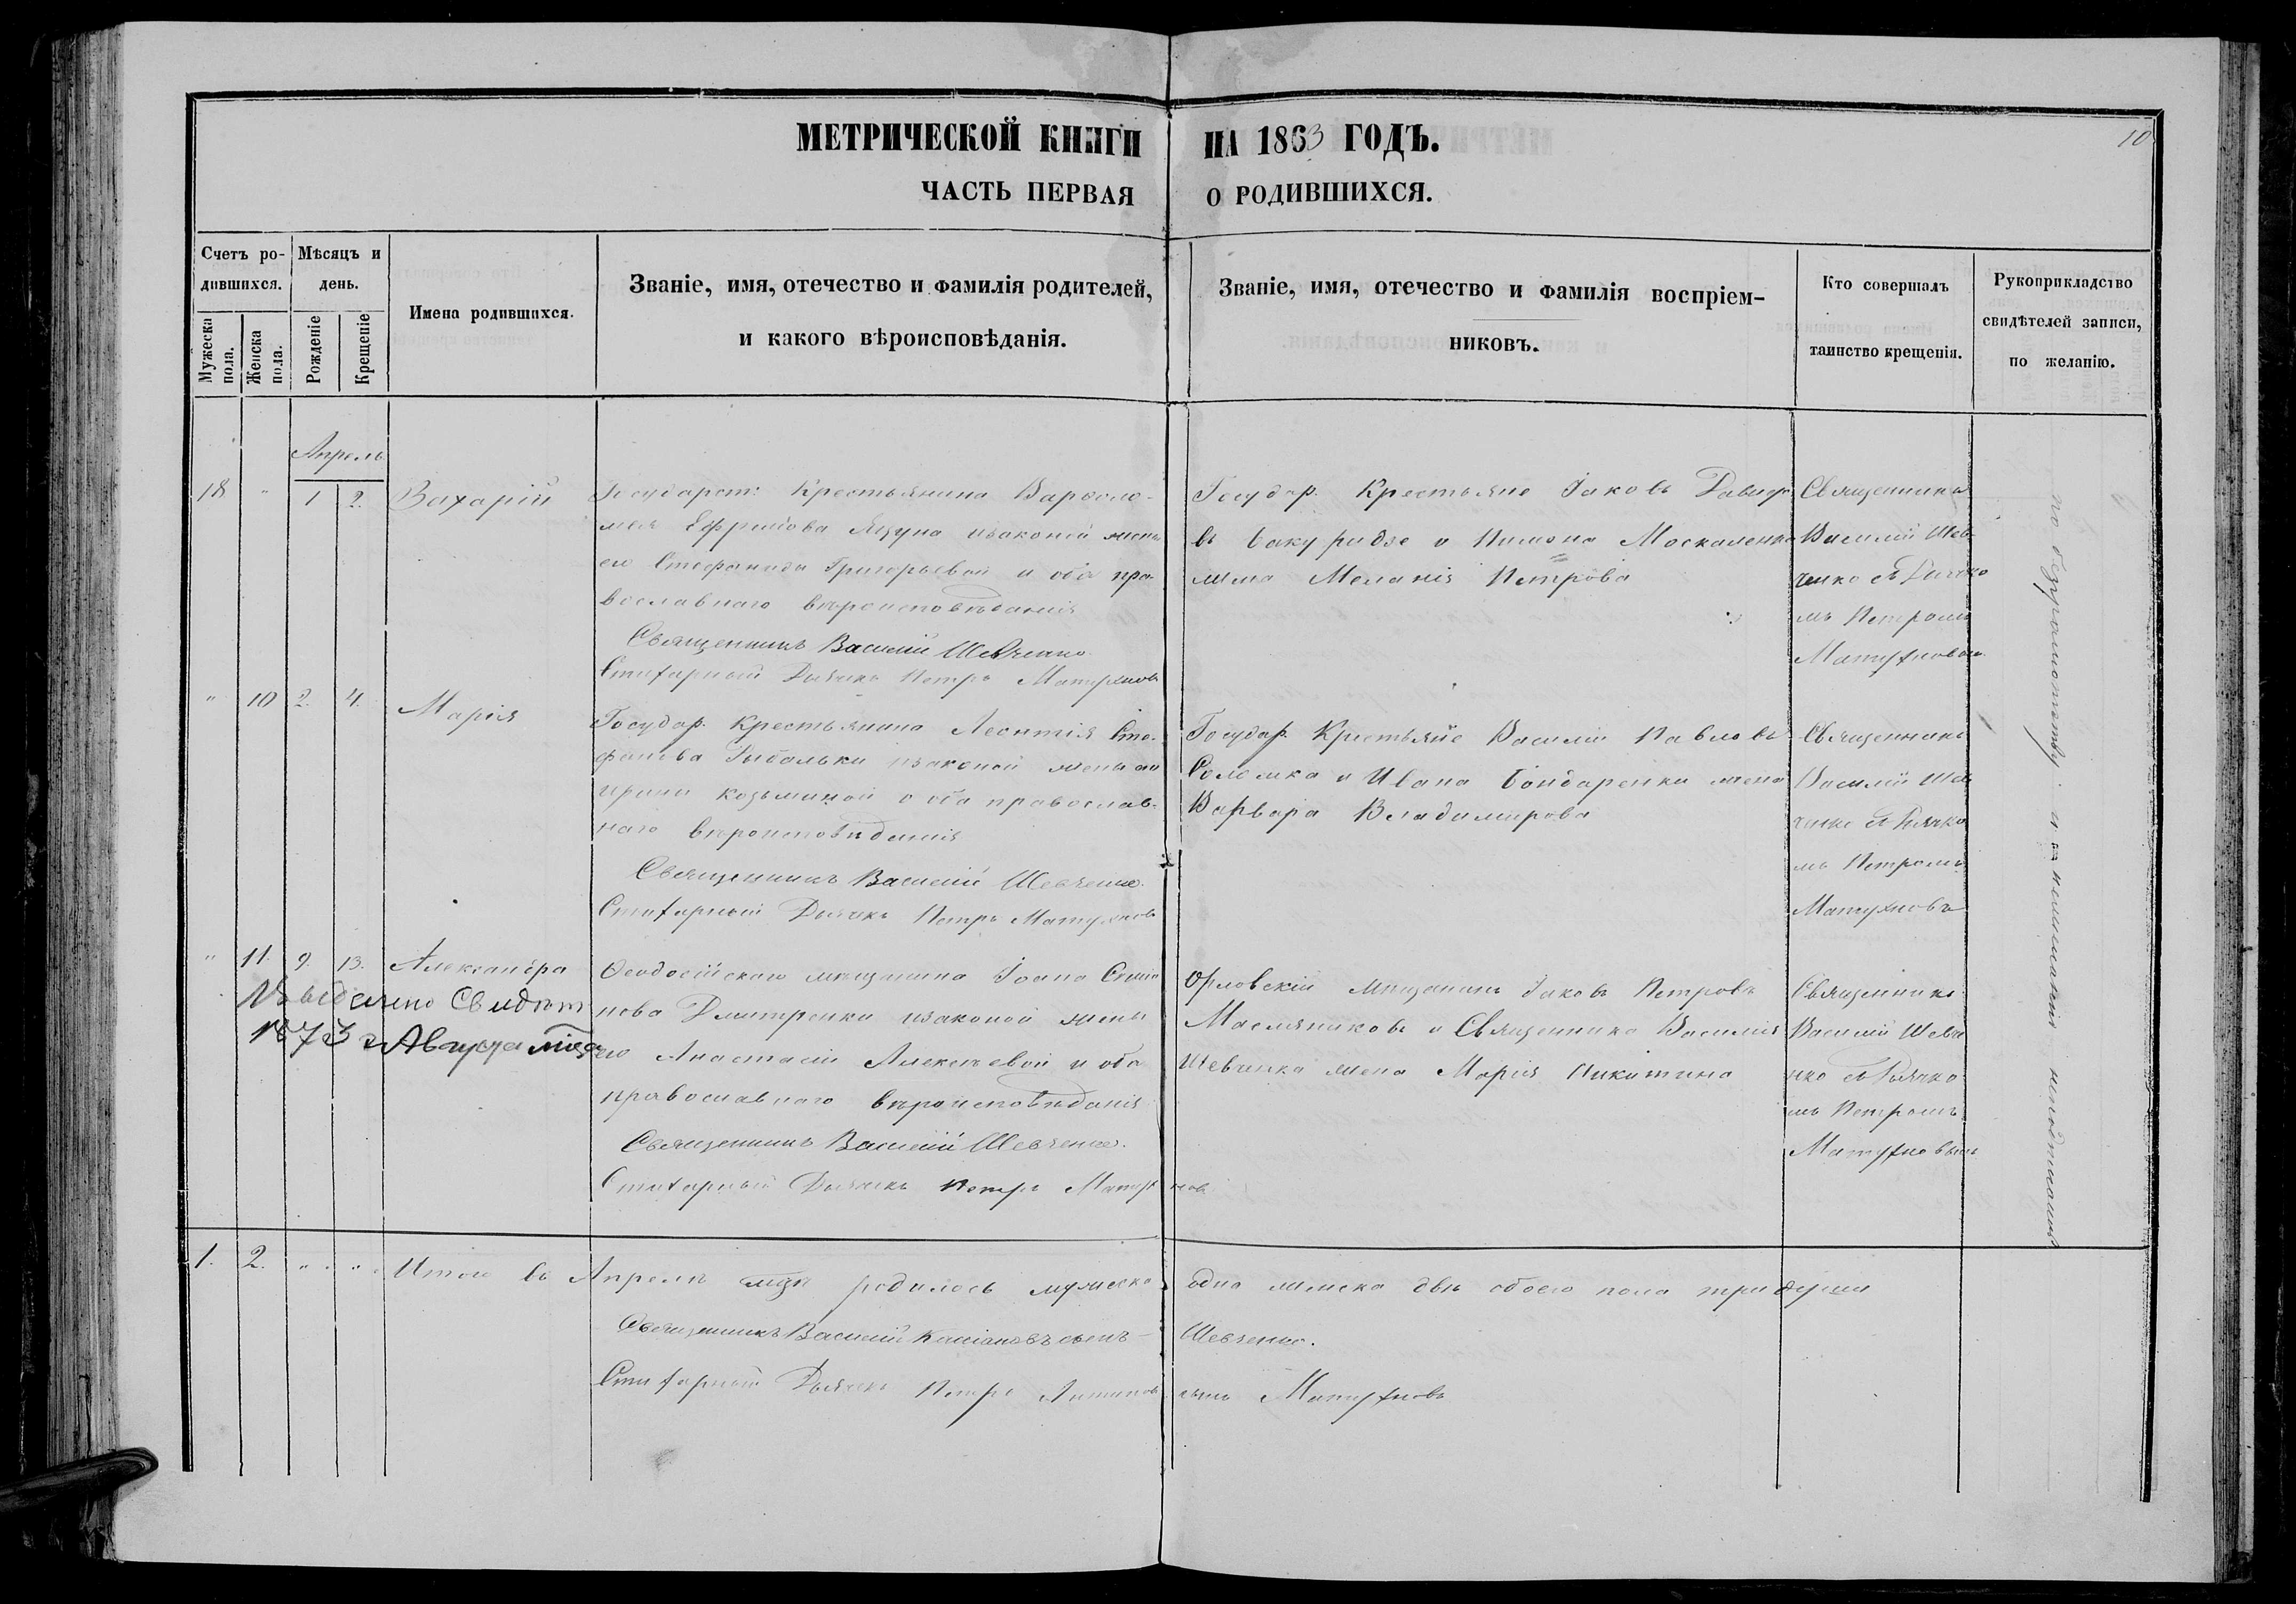 МЕТРИЧЕСКОЙ КНИГИ НА 1863 ГОДЪ.
10
ЧАСТЬ ПЕРВАЯ О РОДИВШИХСЯ.
Счетъ ро-
дившихся.
Мужеска пола.
Женска пола.
Мѣсяцъ и
день.
Рожденіе
Крещеніе
Имена родившихся.
Званіе, имя, отечество и фамилія родителей,
и какого вѣроисповѣданія.
Званіе, имя, отечество и фамилія воспріем-
никовъ.
Кто совершалъ
таинство крещенія.
Рукоприкладство
свидѣтелей записи,
по желанію.
Апрель
18 " 1 2. Захарій
Государст: Крестьянина Варѳоло-
мея Ефремова Яцуна изаконой жены
его Стефаниды Григорьевой и оба пра-
вославнаго вѣроисповѣданія
Священникъ Василій Шевченко.
Стихарный Дьячекъ Петръ Матухновъ
Государ. Крестьяне Іаковъ Давидо
въ и Пимона Москаленка
жена Меланія Петрова
Священникъ
Василій Шев-
ченко съ Дьячко
мъ Петромъ
Матухновым
" 10 2. 4. Марія
Государ. Крестьянина Леонтія Сте-
фанова Рыбалки изаконой жены его
Ирины Козьминой и оба православ-
наго вѣроисповѣданія
Священникъ Василій Шевченко.
Стихарный Дьячекъ Петръ Матухновъ
Государ. Крестьяне Василій Павловъ
Соломка и Ивана Бондаренки жена
Варвара Владимирова
Священникъ
Василій Шев
ченко съ Дьячко
мъ Петромъ
Матухновъ
" 11. 9. 13. Александра
Выдано Свидѣт
1873 г Августа
Ѳеодосійскаго мещанина Іоана Семе
нова Дмитренки изаконой жены
его Анастасіи Алексѣевой и оба
православнаго вѣроисповѣданія
Священникъ Василій Шевченко.
Стихарный Дьячекъ Петръ Матухновъ
Орловскій мещанинъ Іаковъ Петровъ
Масляниковъ и Священника Василія
Шевченка жена Марія Никитина
Священникъ
Василій Шевче
нко съ Дьячко
мъ Петромъ
Матухновымъ
по безграмотству
1. 2. " " Итого въ Апрелѣ мцѣ родилось мужска одна женска двѣ обоего пола три души
Священникъ Василій Касіановъ сынъ Шевченко.
Стихарный Дьячекъ Петръ Антиповъ сынъ Матухновъ